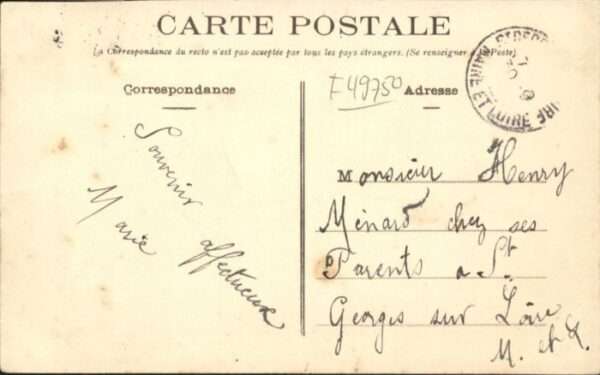 CARTE POSTALE
La Correspondance du recto n'est pas acceptée par tous les pays étrangers. (Se renseigner à la Poste)
Correspondance
F 49750
Adresse
MAINE ET LOIRE
Souvenir affectueux
Marie
Monsieur Henry
Ménard chez ses
Parents a St
Georges sur Loire
M. et L.